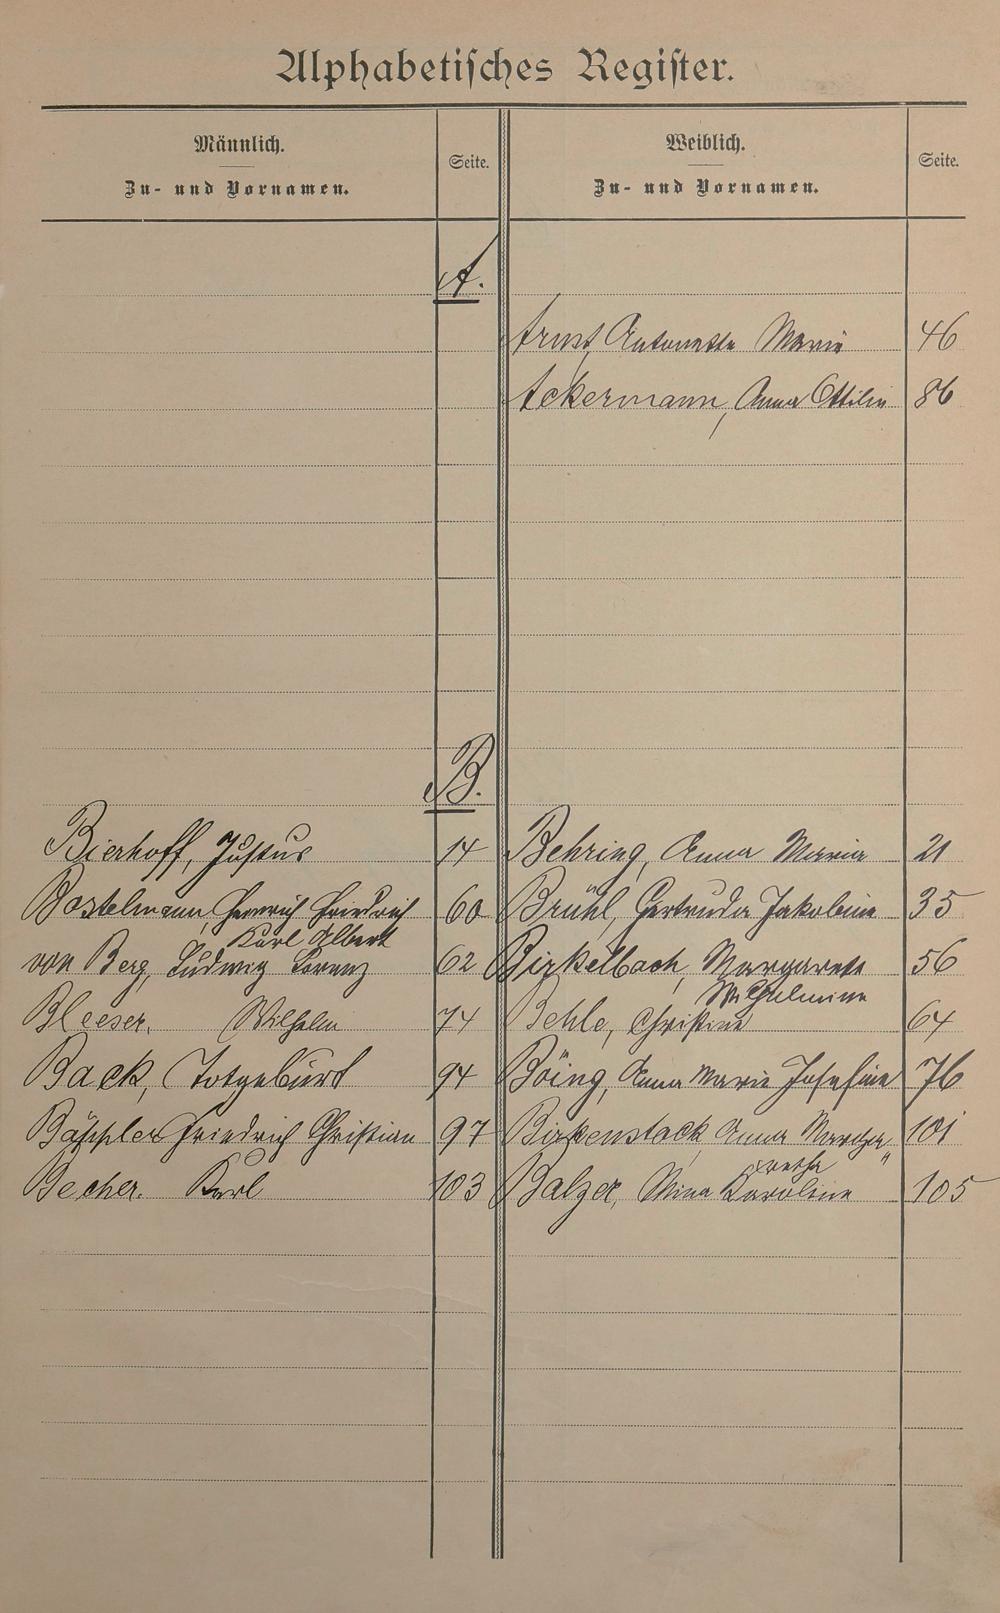 Alphabetisches Register.
Männlich. Weiblich.
Seite. Seite.
Zu- und Vornamen. Zu- und Vornamen.
A.
Ernst, Antonette Marie 46
Ackermann, Anna Ottilie 86
B.
Bierhoff, Justus 14 Behring, Anna Maria 21
Bostelmann, Heinrich Friedrich 60 Brühl, Gertruda Jakobine 35
Karl Albert
von Berg, Ludwig Lorenz 62 Birkelbach, Margarete 56
Wilhelmine
Bleeser, Wilhelm 74 Behle, Christine 64
Back, Totgeburt 94 Böing, Anna Marie Josefine 76
Bäppler Friedrich Christian 97 Birkenstock, Anna Marga„ 101
retha
Becher. Karl 103 Balzer, Mina Karoline 105